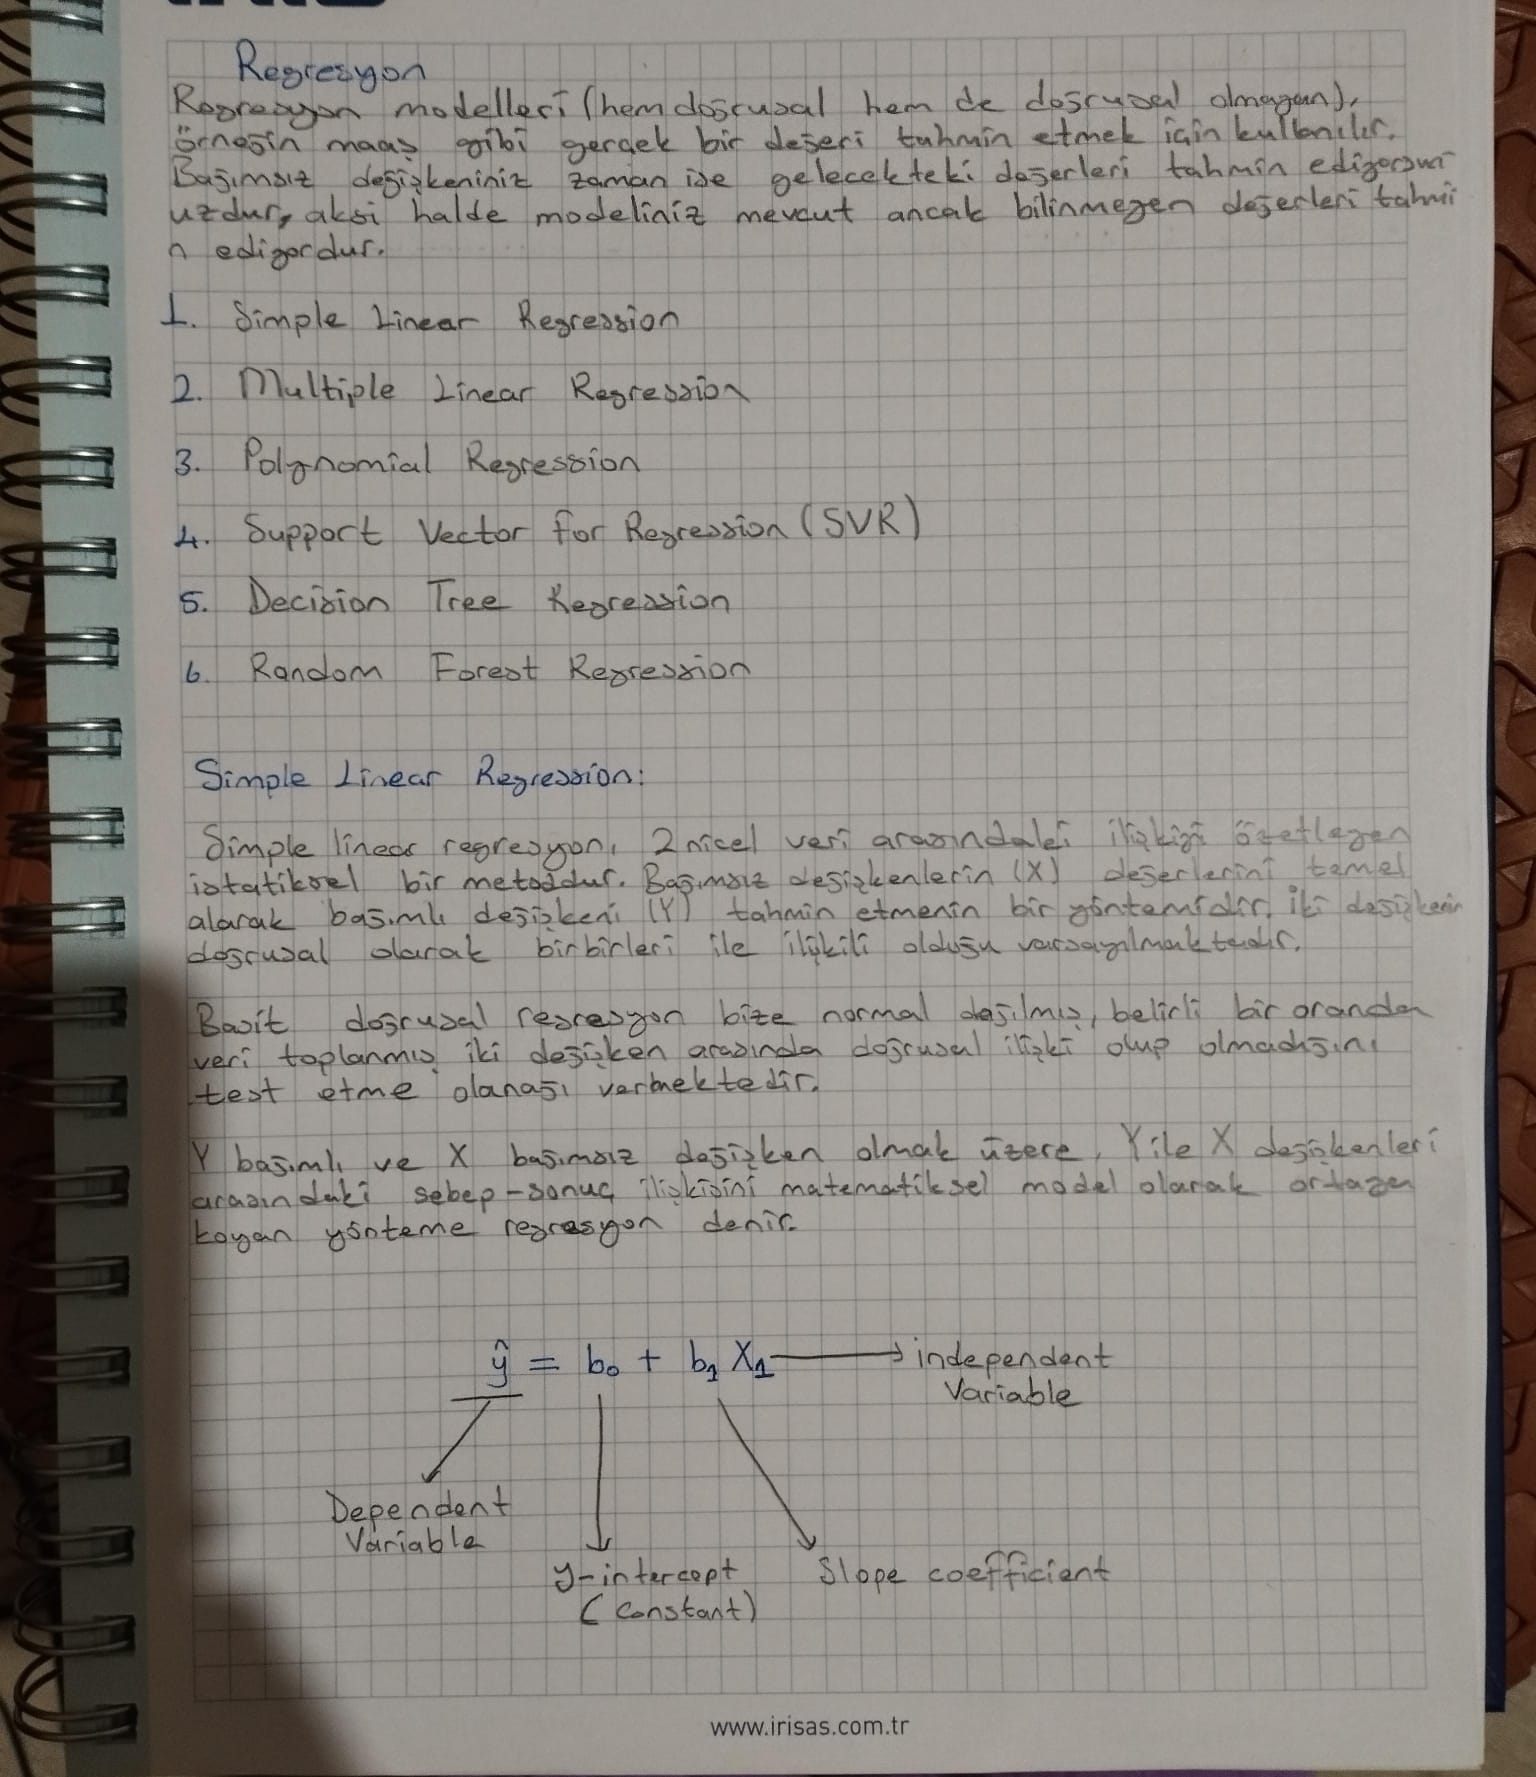 Regresyon
Regresyon modelleri (hem doğrusal hem de doğrusal olmayan),
örneğin maaş gibi gerçek bir değeri tahmin etmek için kullanılır.
Bağımsız değişkeniniz zaman ise gelecekteki değerleri tahmin ediyorsun
uzdur, aksi halde modeliniz mevcut ancak bilinmeyen değerleri tahmi
n ediyordur.
1. Simple Linear Regression
2. Multiple Linear Regression
3. Polynomial Regression
4. Support Vector for Regression (SVR)
5. Decision Tree Regression
6. Random Forest Regression
Simple Linear Regression:
Simple linear regresyon, 2 nicel veri arasındaki ilişkiyi özetleyen
istatiksel bir metoddur. Bağımsız değişkenlerin (X) değerlerini temel
alarak bağımlı değişkeni (Y) tahmin etmenin bir yöntemidir. İki değişkenin
doğrusal olarak birbirleri ile ilişkili olduğu varsayılmaktadır.
Basit doğrusal regresyon bize normal dağılmış, belirli bir orandan
veri toplanmış iki değişken arasında doğrusal ilişki olup olmadığını
test etme olanağı vermektedir.
Y bağımlı ve X bağımsız değişken olmak üzere, Y ile X değişkenleri
arasındaki sebep-sonuç ilişkisini matematiksel model olarak ortaya
koyan yönteme regresyon denir.
ŷ = b₀ + b₁ X₁ → independent
Variable
Dependent
Variable
y-intercept
(Constant)
Slope coefficient
www.irisas.com.tr